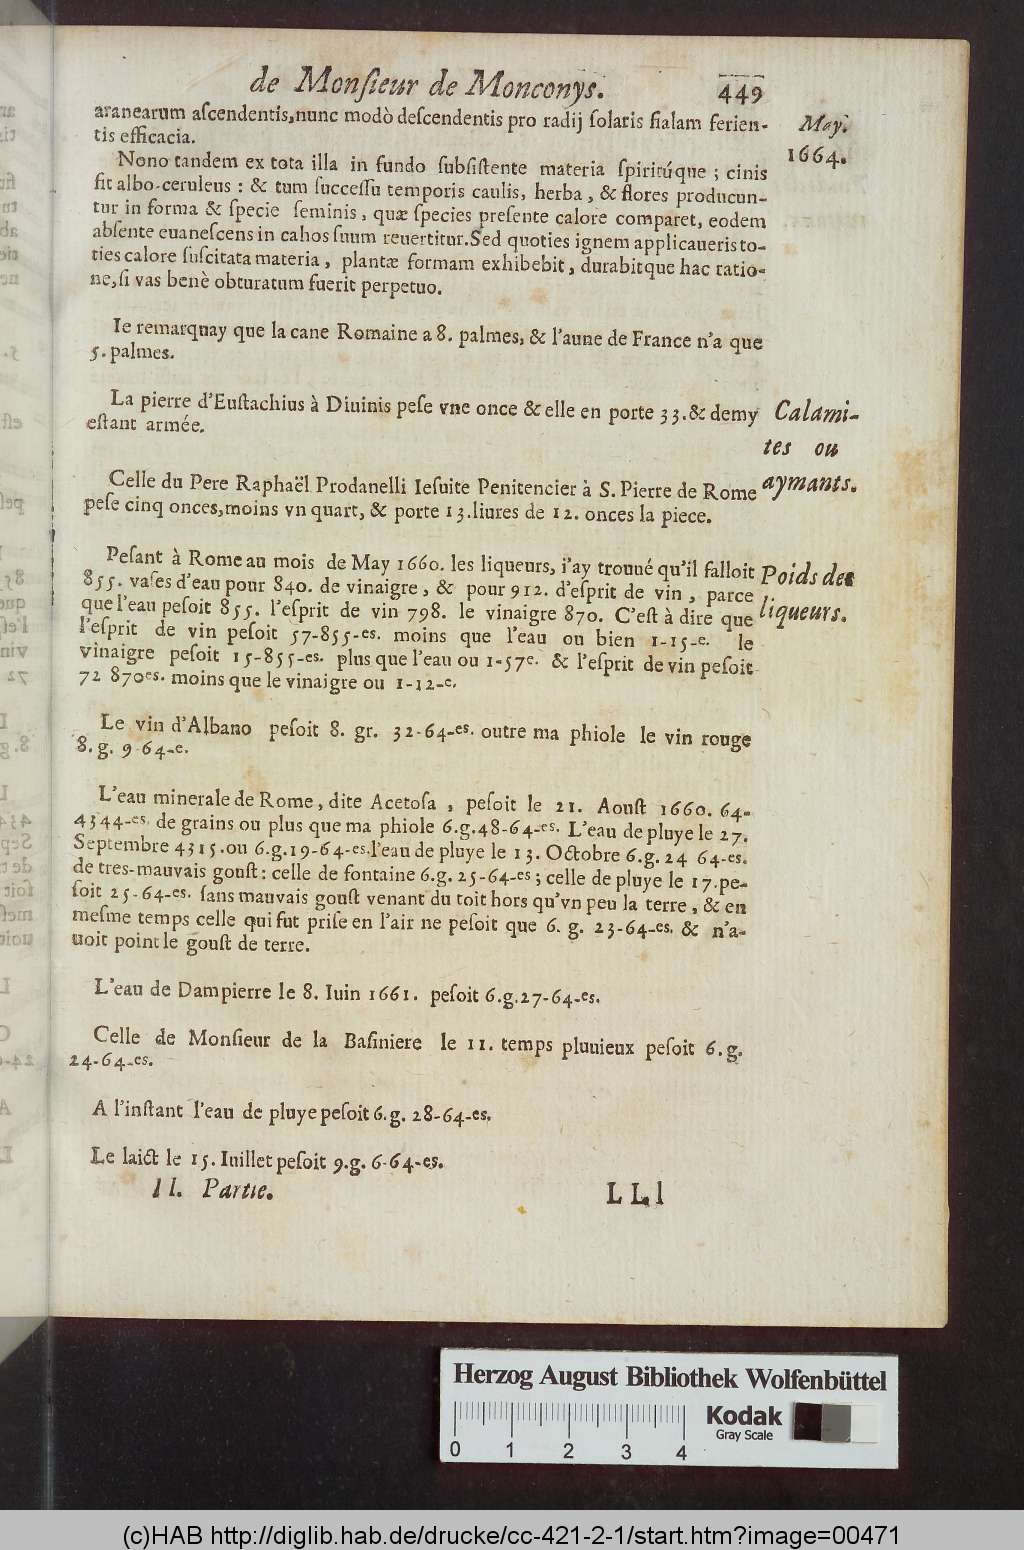 de Monſieur de Monconys. 449
aranearum aſcendentis, nunc modò deſcendentis pro radij ſolaris ſialam ferien-
tis efficacia.
May.
1664.
Nono tandem ex tota illa in fundo ſubſiſtente materia ſpiritúque ; cinis
fit albo-ceruleus : & tum ſucceſſu temporis caulis, herba, & flores producun-
tur in forma & ſpecie ſeminis, quæ ſpecies preſente calore comparet, eodem
abſente euaneſcens in cahos ſuum reuertitur. Sed quoties ignem applicaueris to-
ties calore ſuſcitata materia, plantæ formam exhibebit, durabitque hac ratio-
ne, ſi vas benè obturatum fuerit perpetuo.
Ie remarquay que la cane Romaine a 8. palmes, & l'aune de France n'a que
5. palmes.
La pierre d'Euſtachius à Diuinis peſe vne once & elle en porte 33. & demy
eſtant armée.
Calami-
tes ou
aymants.
Celle du Pere Raphaël Prodanelli Ieſuite Penitencier à S. Pierre de Rome
peſe cinq onces, moins vn quart, & porte 13. liures de 12. onces la piece.
Peſant à Rome au mois de May 1660. les liqueurs, i'ay trouué qu'il falloit
855. vaſes d'eau pour 840. de vinaigre, & pour 912. d'eſprit de vin, parce
que l'eau peſoit 855. l'eſprit de vin 798. le vinaigre 870. C'eſt à dire que
l'eſprit de vin peſoit 57-855-es. moins que l'eau ou bien 1-15-e. le
vinaigre peſoit 15-855-es. plus que l'eau ou 1-57e. & l'eſprit de vin peſoit
72 870es. moins que le vinaigre ou 1-12-e.
Poids des
liqueurs.
Le vin d'Albano peſoit 8. gr. 32-64-es. outre ma phiole le vin rouge
8. g. 9-64-e.
L'eau minerale de Rome, dite Acetoſa, peſoit le 21. Aouſt 1660. 64-
4344-es. de grains ou plus que ma phiole 6.g.48-64-es. L'eau de pluye le 27.
Septembre 4315. ou 6.g.19-64-es. l'eau de pluye le 13. Octobre 6.g. 24 64-es.
de tres-mauvais gouſt : celle de fontaine 6.g. 25-64-es ; celle de pluye le 17. pe-
ſoit 25-64-es. ſans mauvais gouſt venant du toit hors qu'vn peu la terre, & en
meſme temps celle qui fut priſe en l'air ne peſoit que 6. g. 23-64-es. & n'a-
uoit point le gouſt de terre.
L'eau de Dampierre le 8. Iuin 1661. peſoit 6.g.27-64-es.
Celle de Monſieur de la Baſiniere le 11. temps pluuieux peſoit 6. g.
24-64-es.
A l'inſtant l'eau de pluye peſoit 6.g. 28-64-es.
Le laict le 15. Iuillet peſoit 9.g. 6-64-es.
II. Partie. LLl
Herzog August Bibliothek Wolfenbüttel
0 1 2 3 4
Kodak
Gray Scale
(c)HAB http://diglib.hab.de/drucke/cc-421-2-1/start.htm?image=00471